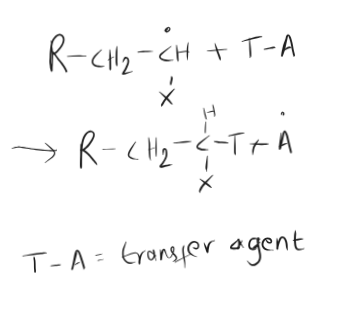 R-CH₂-ĊH + T-A
X
H
→ R-CH₂-C-T + Ȧ
X
T-A = transfer agent